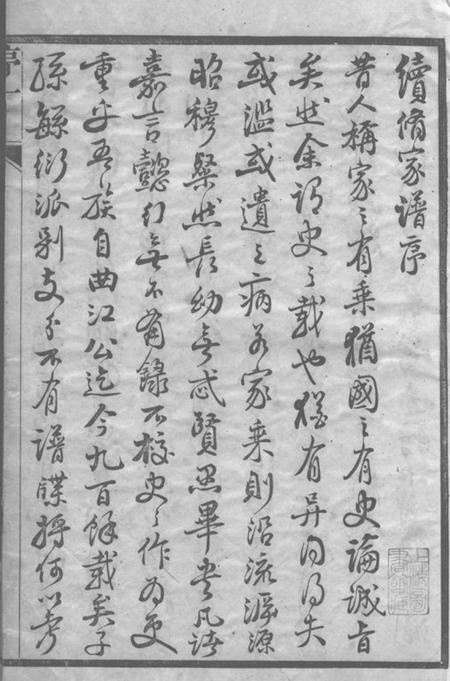 續脩家譜序
昔人稱家之有乘猶國之有史論誠旨
矣然余謂史之載也猶有异同得失
或濫或遺之病若家乘則沿流溯源
昭穆粲然長幼無忒賢愚畢書凡諸
嘉言懿行無不備錄不校史之作為更
重乎吾族自曲江公迄今九百餘載矣子
孫繇衍派别支分不有譜牒將何以考